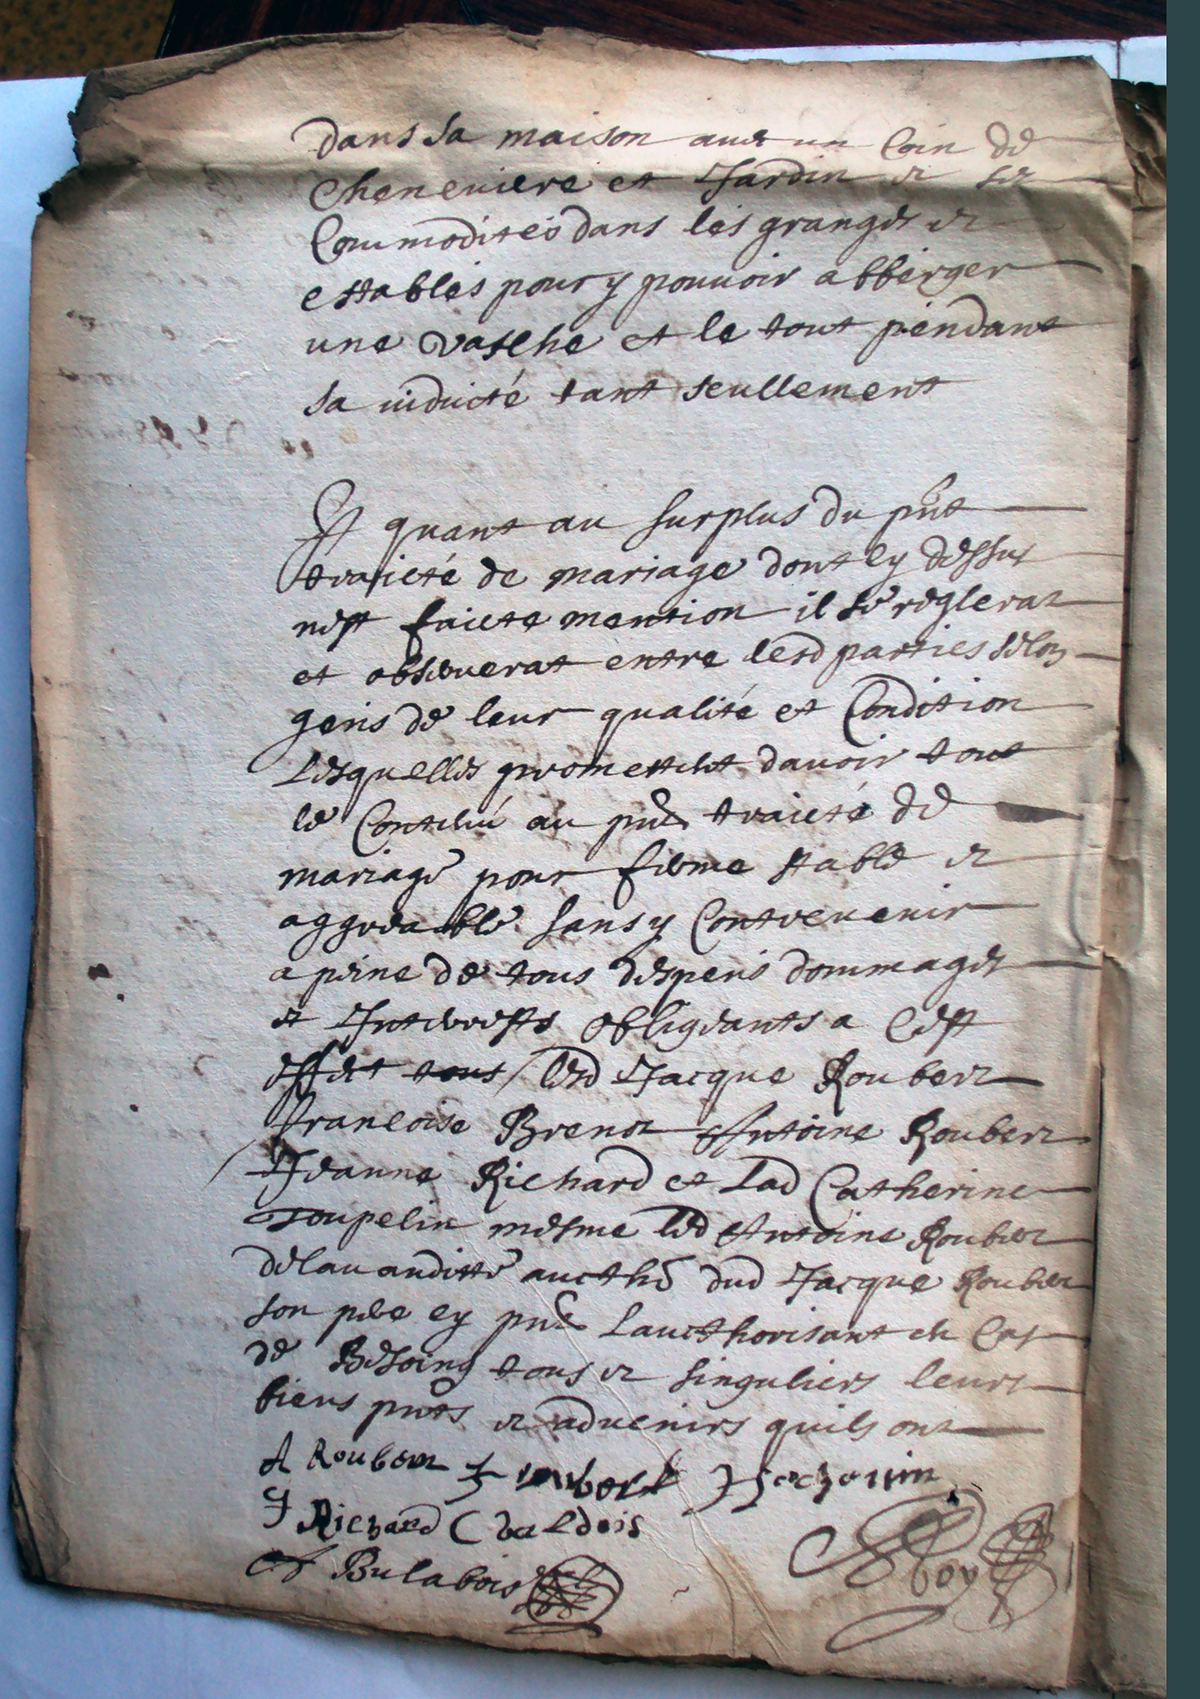 dans sa maison avec un Coin de
Cheneviere et Jardin et ses
Commodites dans les granges et
estables pour y pouvoir abberger
une vasche et le tout pendant
sa viduité tant seullement
Et quant au surplus du pnt
traicté de mariage dont cy dessus
nest faicte mention il se reglerat
et observerat entre lesd parties selon
gens de leur qualité et Condition
Lesquelles promettent davoir tout
le Contenu au pnt traicté de
mariage pour ferme stable et
aggreable sans y Contrevenir
a peine de tous despens dommages
et Interests obligeants a Cest
effect tous lesd Jacque Roubert
francoise Brenot Antoine Roubert
Jeanne Richard et Lad Catherine
Toupelin mesme led Antoine Roubert
de lauauditté aucthé dud Jacque Roubert
son pere cy pnt Laucthorisant en Cas
de Besoing tous et singuliers leurs
biens pnts et advenirs quils ont
A Roubert J roubert
J Richard C valdois
A Bulabois Boy